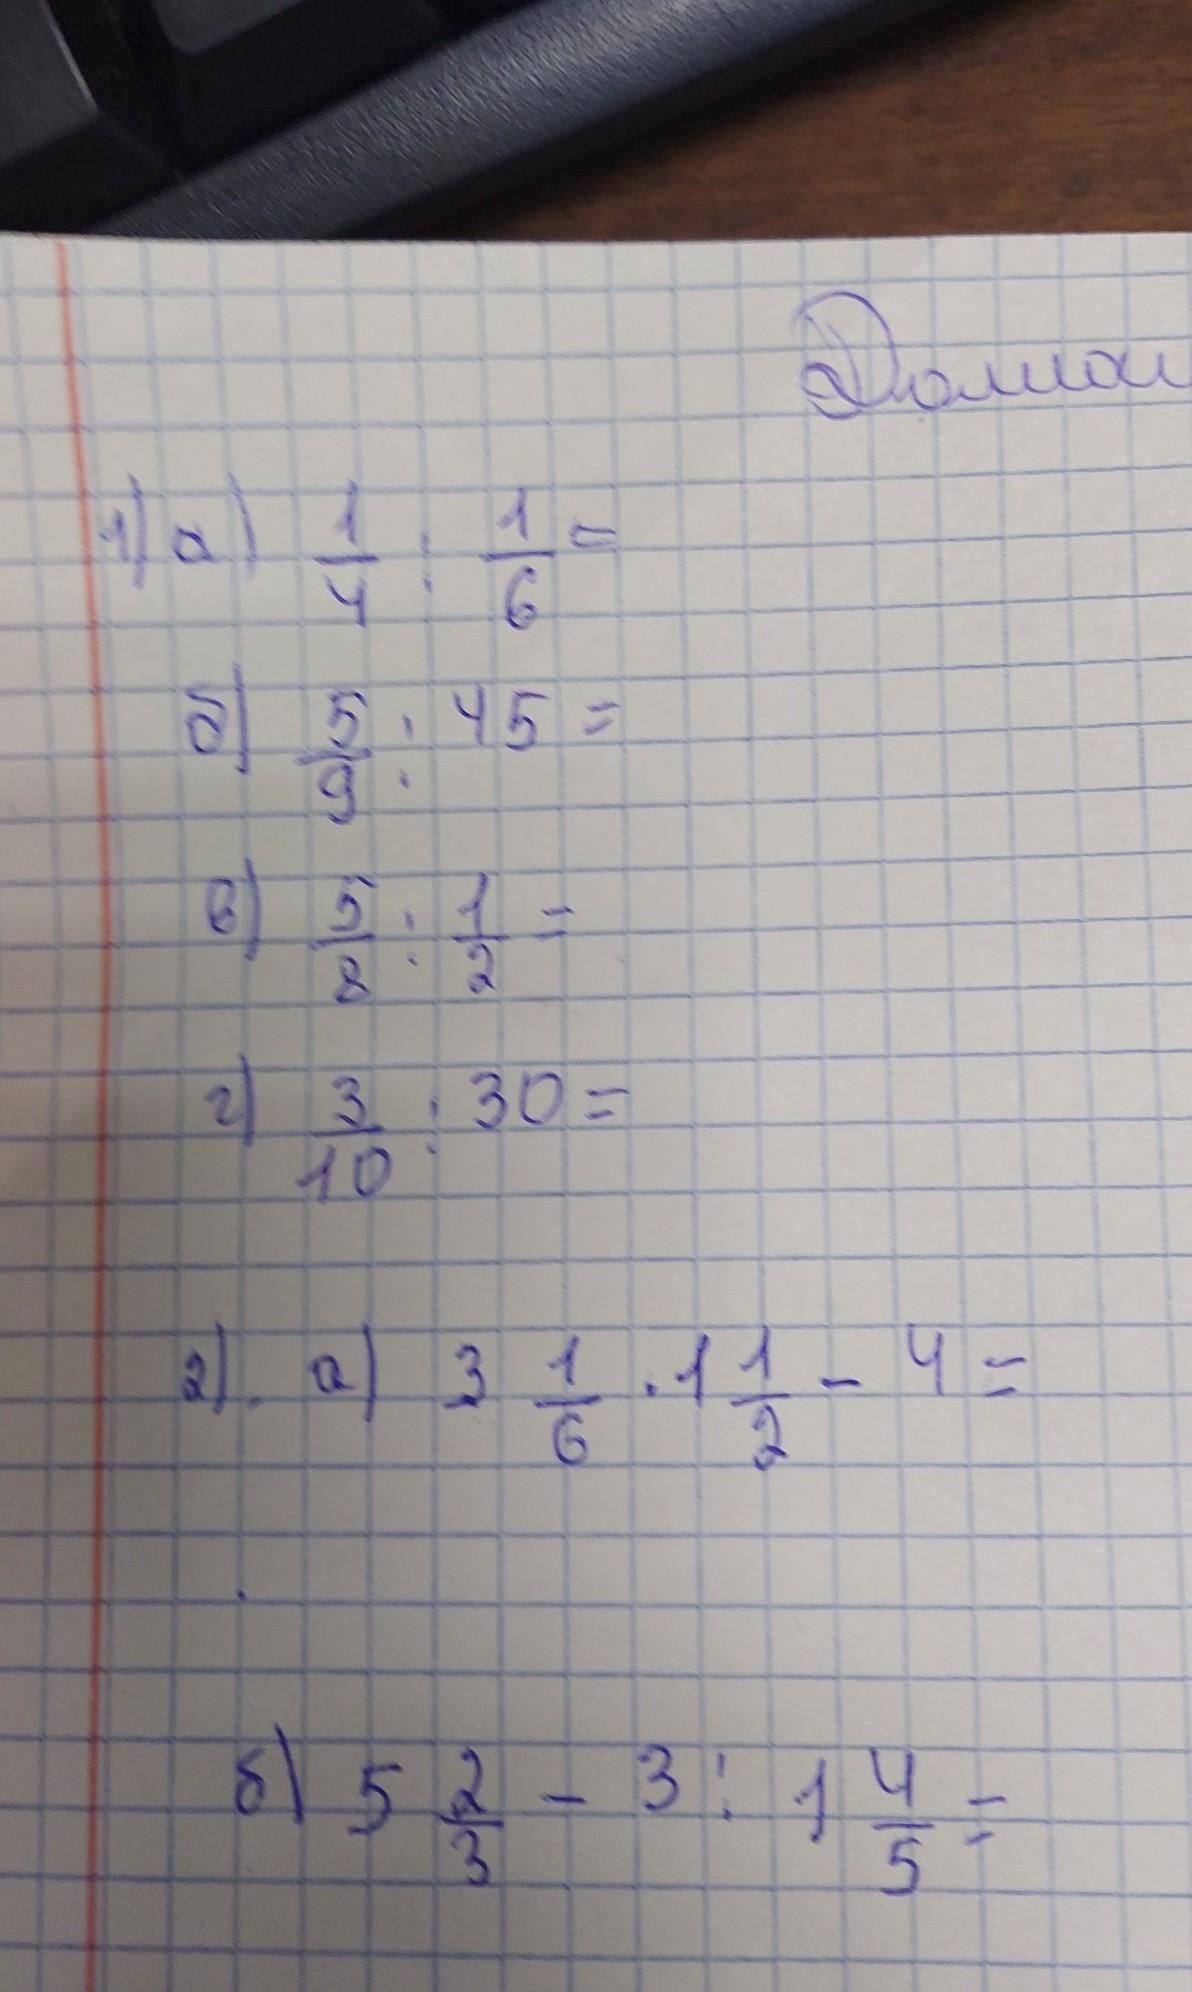 1) а) 1/4 : 1/6 =
б) 5/9 : 45 =
в) 5/8 : 1/2 =
г) 3/10 : 30 =
2). а) 3 1/6 · 1 1/2 - 4 =
б) 5 2/3 - 3 : 1 4/5 =